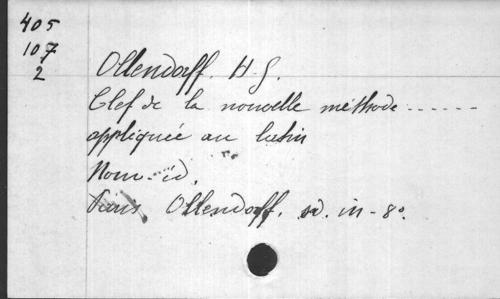 405
107
2
Ollendorff. H. G.
Clef de la nouvelle méthode ......
appliquée au latin
Nouv. éd.
Paris Ollendorff. sd. in-8º.